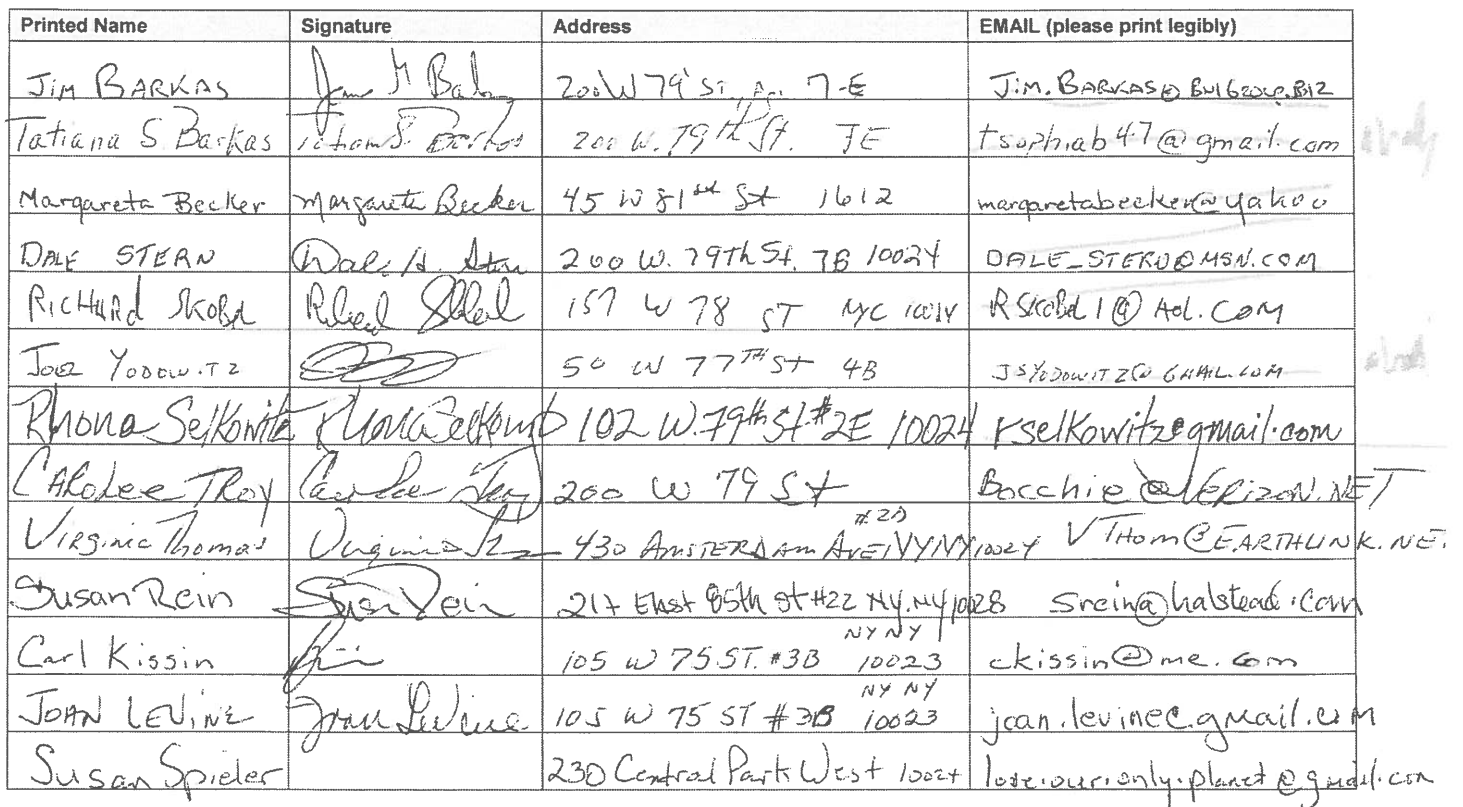 Printed Name Signature Address EMAIL (please print legibly)
JIM BARKAS 200 W 79 ST. 7-E
Tatiana S Barkas 200 W. 79th St. 7E tsophiab47@gmail.com
Margareta Becker Margareta Becker 45 W 81st St 1612 margaretabecker@yahoo
DALE STERN Dale H. Stern 200 W. 79Th St. 7B 10024 DALE_STERN@MSN.COM
RICHARd 157 W 78 ST NYC
JOEL YODOWITZ 50 W 77TH St 4B JSYODOWITZ@GMAIL.COM
Rhona Selkowitz Rhona Selkowitz 102 W. 79th St #2E 10024 rselkowitz@gmail.com
CAROLee TROY Carolee Troy 200 W 79 St Bocchie@VERIZON.NET
Virginia Thomas Virginia 430 AMSTERDAM AVE, NY NY 10024 VTHOM@EARTHLINK.NE
Susan Rein Susan Rein 217 East 85th St #22 NY, NY 10028 srein@halstead.com
NY NY
Carl Kissin 105 W 75 ST. #3B 10023 ckissin@me.com
NY NY
JOAN LEVINE Joan Levine 105 W 75 ST #3B 10023 joan.levinec.gmail.com
Susan Spieler 230 Central Park West 10024 love.our.only.planet@gmail.com